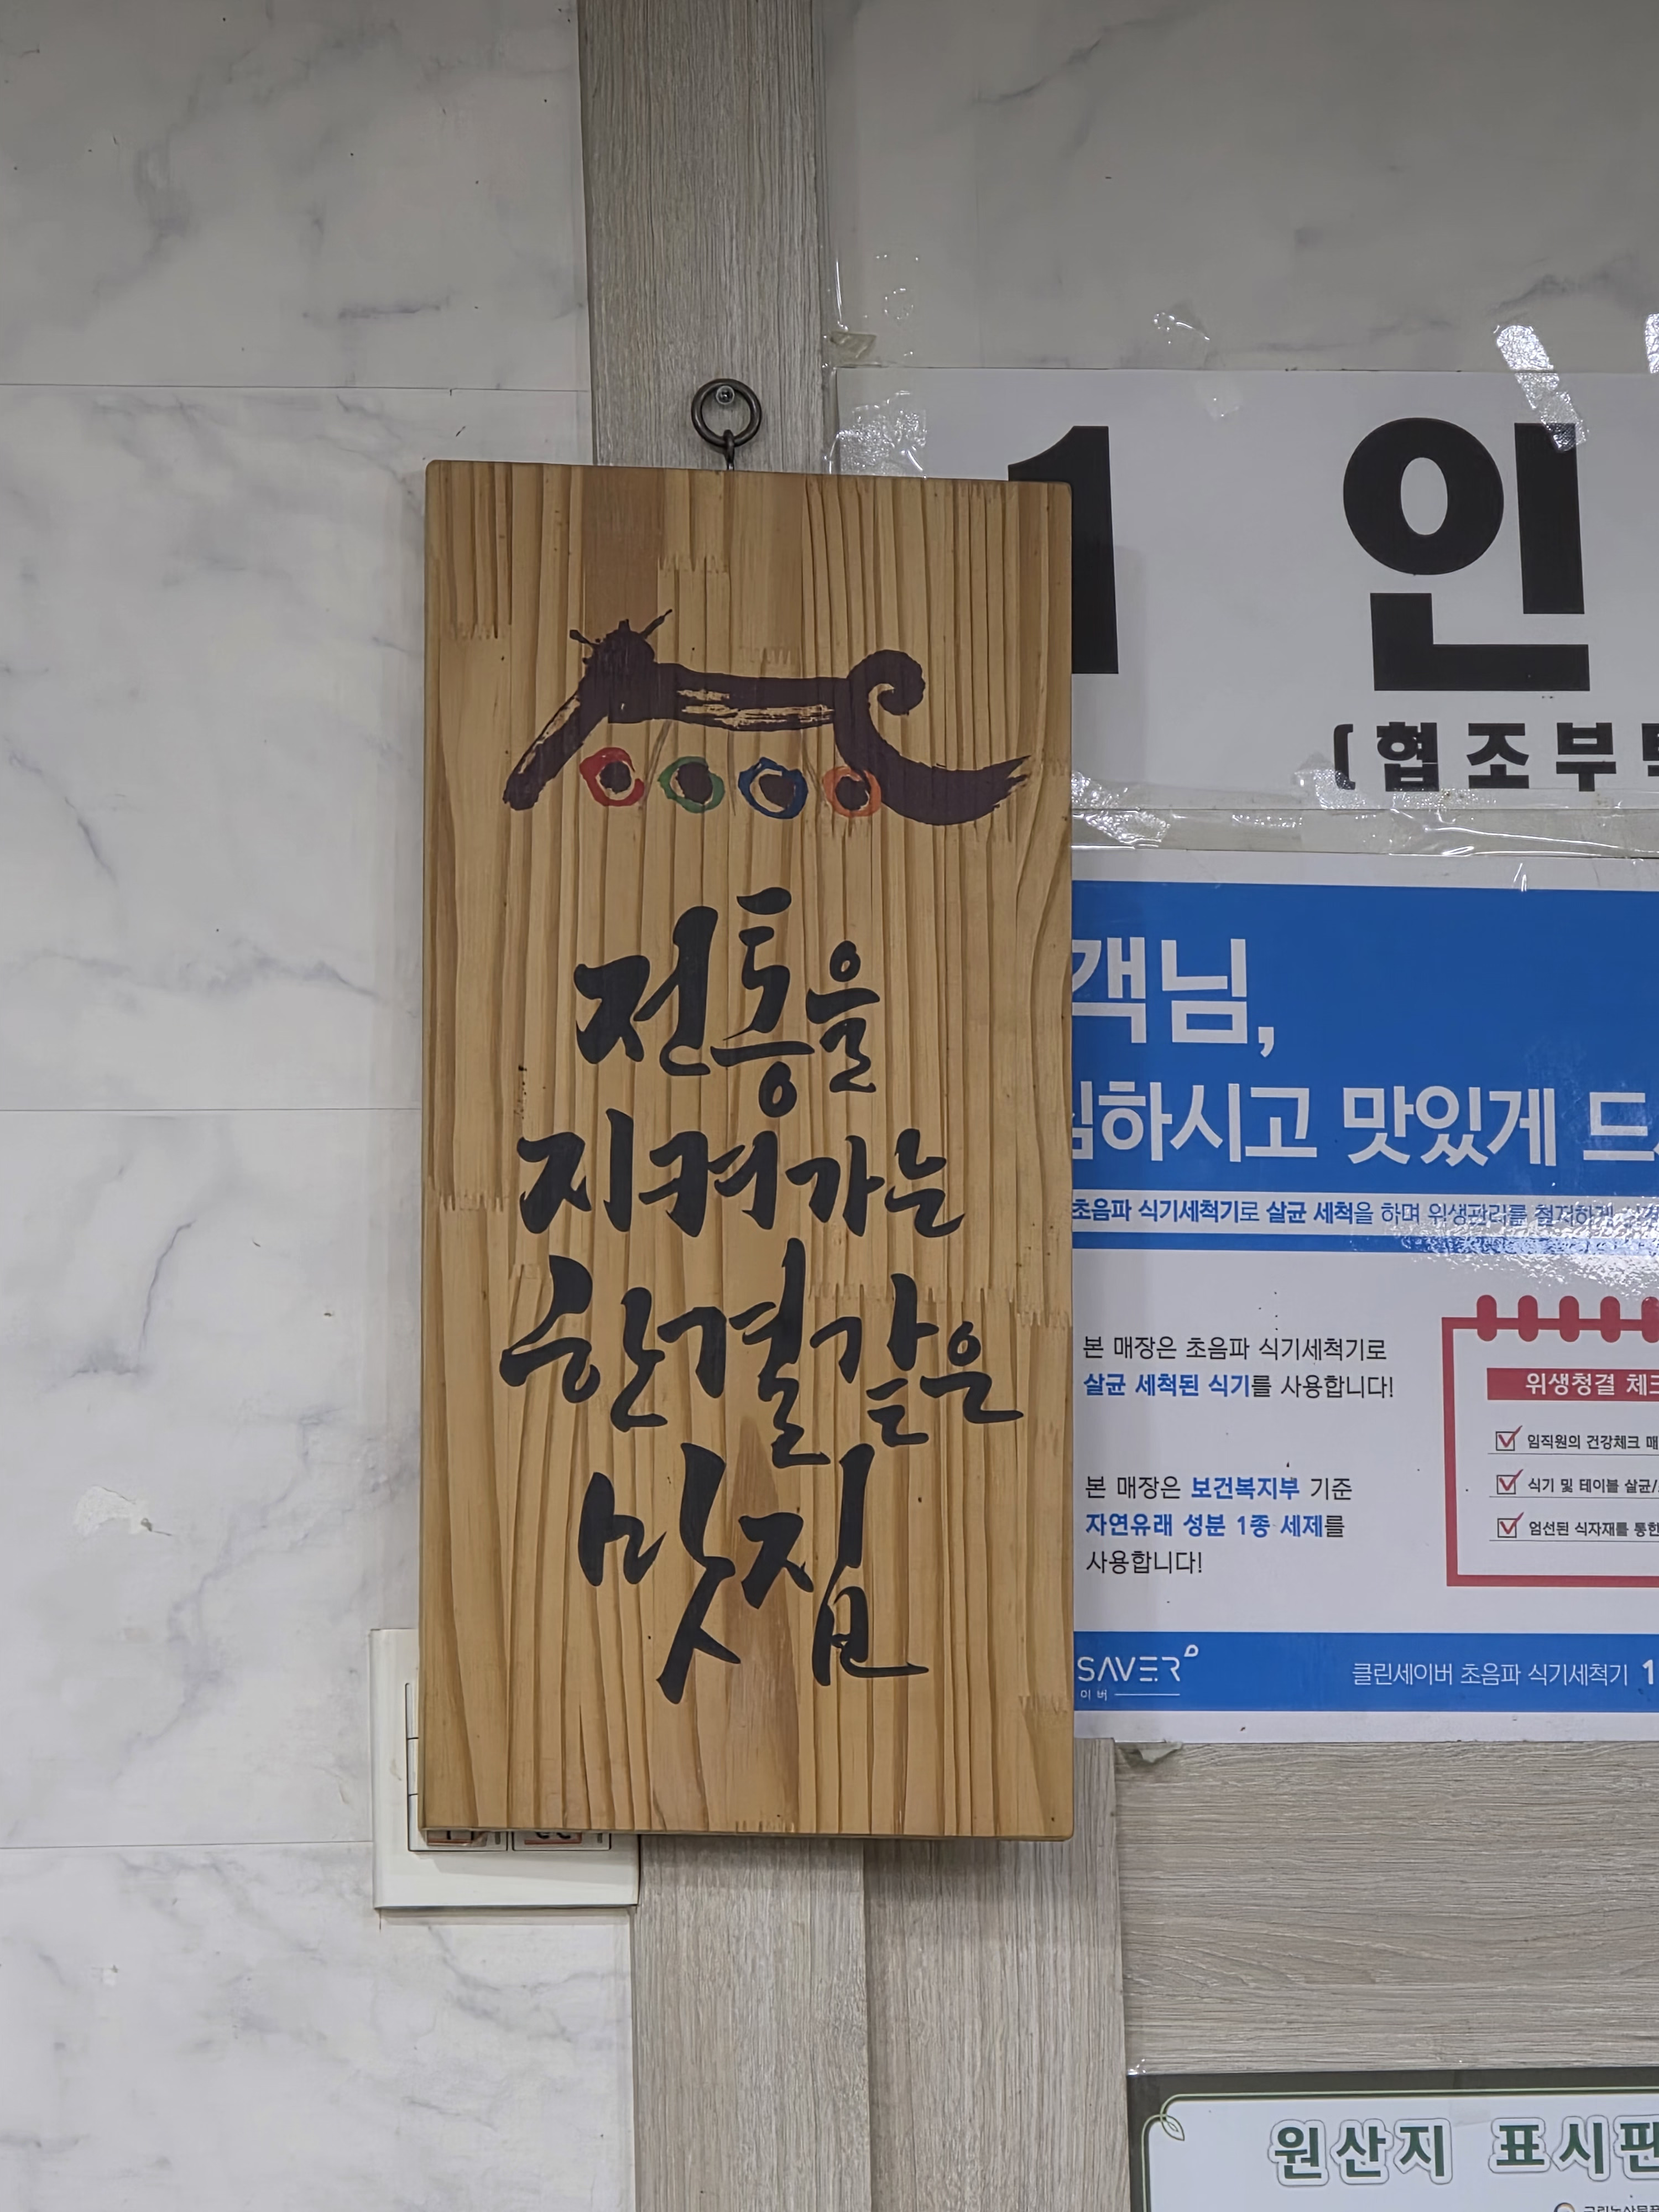 전통을
지켜가는
한결같은
맛집
1 인
(협조부
객님,
하시고 맛있게
초음파 식기세척기로 살균 세척을 하며 위생관리를 철저하게
본 매장은 초음파 식기세척기로
살균 세척된 식기를 사용합니다!
본 매장은 보건복지부 기준
자연유래 성분 1종 세제를
사용합니다!
위생청결 체크
임직원의 건강체크
식기 및 테이블 살균/
엄선된 식자재를 통한
SAVER
이버
클린세이버 초음파 식기세척기 1
원산지 표시판